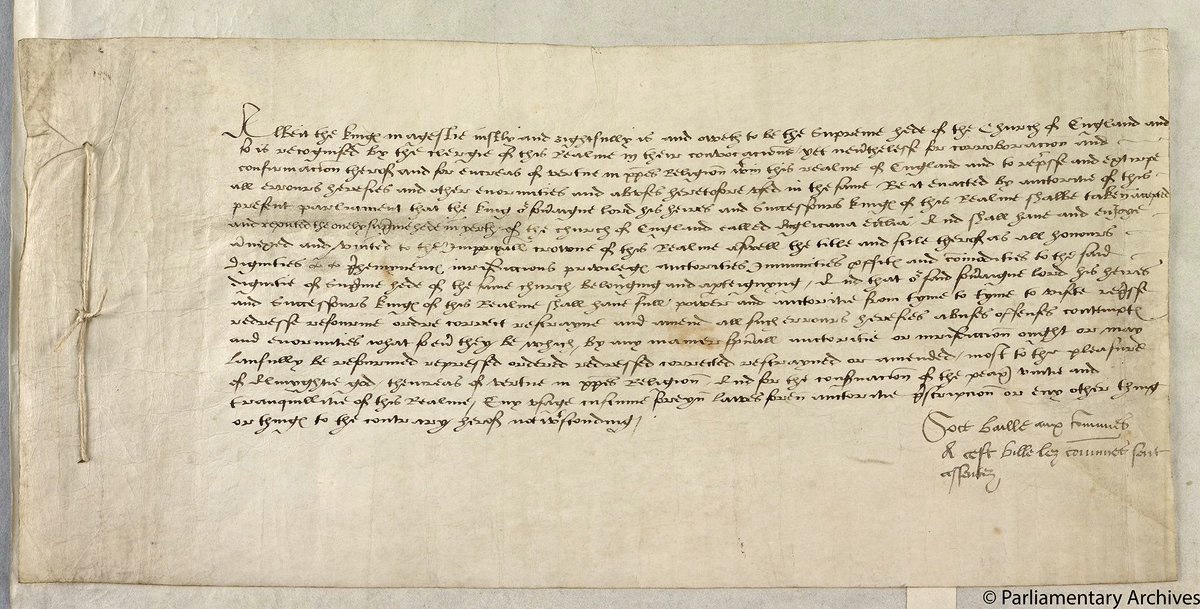 Albeit the kynges magestie iustly and rightfully is and oweth to be the supreme hede of the Church of England and
so is recognised by the clergie of this Realme in their convocacions, yet nevertheles for corroboracion and
confirmacion therof and for encreas of vertue in xpes Religion wtin this realme of England and to represse and extirpe
all errours heresies and other enormities and abuses heretofore used in the same Be it enacted by auctoritie of this
present parliament that the king or soveraigne lord his heires and successours kynges of this Realme shalbe taken accepted
and reputed the onely supreme hede in yerth of the church of England called Anglicana ecclia, And shall have and enioye
annexed and united to the Imperyall crowne of this Realme aswell the title and stile therof as all honours
Dignities preheminences iurisdiccions privileges auctorities ymmunities profites and comodities to the said
dignitie of supreme hede of the same church belonging and apteignyng, And that or said soveraigne lord his heires
and successours kynges of this Realme shall have full power and auctoritie from tyme to tyme to visite represse
redresse refourme ordre correct restrayne and amend all such errours heresies abuses offenses contemptes
and enormities what so ever they be which by any maner sprall auctoritie or iurisdiccion ought or may
lawfully be refourmed repressed ordered redressed corrected restrayned or amended, most to the pleasure
of Almyghtie god, thencreas of vertue in xpes Religion And for the conservacion of the peax unitie and
tranquillitie of this Realme, Eny usage custume foreyn lawes foren auctoritie prescripcion or eny other thing
or thinges to the contrary herof notwtstonding,
Soit baille aux comunes
A cest bille lez comunes sont
assentez
© Parliamentary Archives